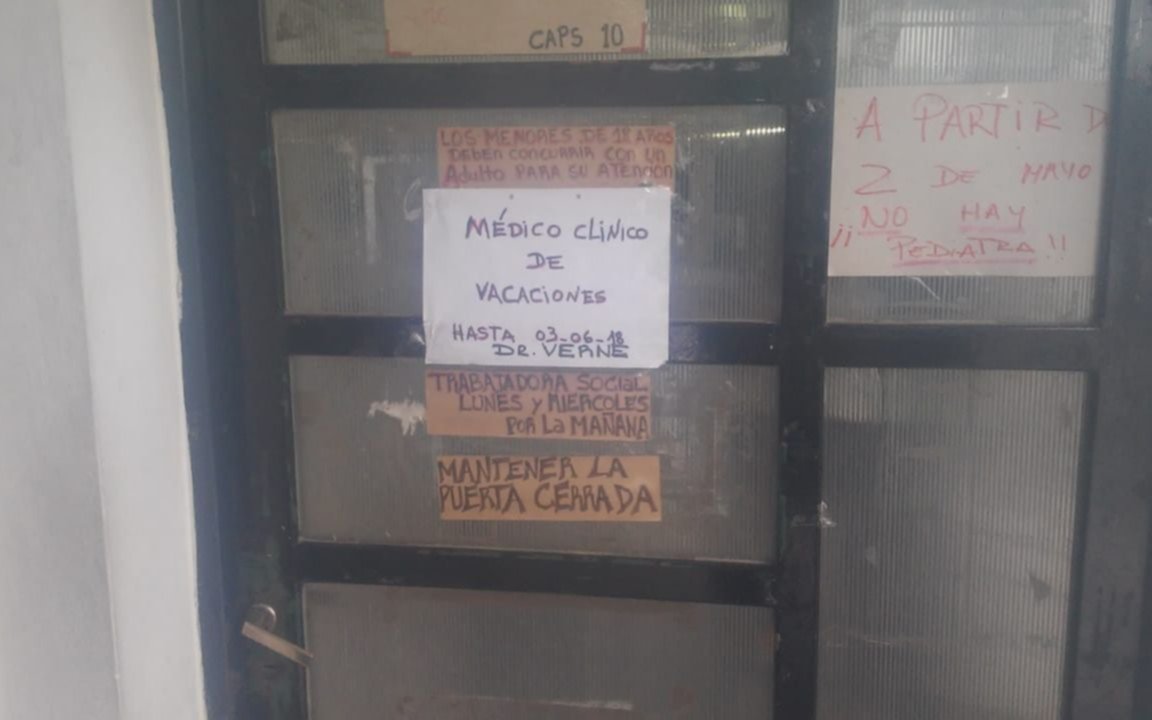 CAPS 10
LOS MENORES DE 18 AÑOS
DEBEN CONCURRIR CON UN
Adulto PARA SU ATENCION
MÉDICO CLINICO
DE
VACACIONES
HASTA 03-06-18
DR. VERNE
TRABAJADORA SOCIAL
LUNES y MIERCOLES
POR La MAÑANA
MANTENER LA
PUERTA CERRADA
A PARTIR D
2 DE MAYO
¡¡NO HAY
PEDIATRA!!